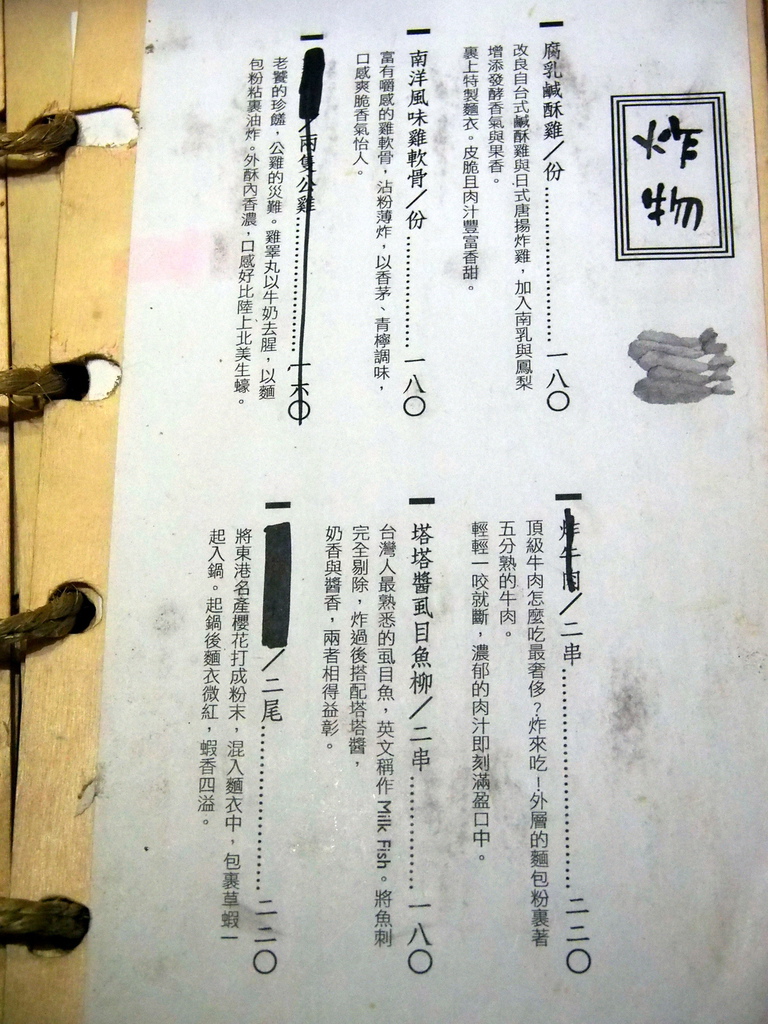 炸物
腐乳鹹酥雞／份…………一八〇
改良自台式鹹酥雞與日式唐揚炸雞，加入南乳與鳳梨
增添發酵香氣與果香。
裹上特製麵衣。皮脆且肉汁豐富香甜。
南洋風味雞軟骨／份…………一八〇
富有嚼感的雞軟骨，沾粉薄炸，以香茅、青檸調味，
口感爽脆香氣怡人。
／兩隻公雞…………一六〇
老饕的珍饈，公雞的災難。雞睪丸以牛奶去腥，以麵
包粉粘裹油炸。外酥內香濃，口感好比陸上北美生蠔。
炸牛肉／二串…………二二〇
頂級牛肉怎麼吃最奢侈？炸來吃！外層的麵包粉裹著
五分熟的牛肉。
輕輕一咬就斷，濃郁的肉汁即刻滿盈口中。
塔塔醬虱目魚柳／二串…………一八〇
台灣人最熟悉的虱目魚，英文稱作 Milk Fish。將魚刺
完全剔除，炸過後搭配塔塔醬，
奶香與醬香，兩者相得益彰。
／二尾…………二二〇
將東港名產櫻花打成粉末，混入麵衣中，包裹草蝦一
起入鍋。起鍋後麵衣微紅，蝦香四溢。